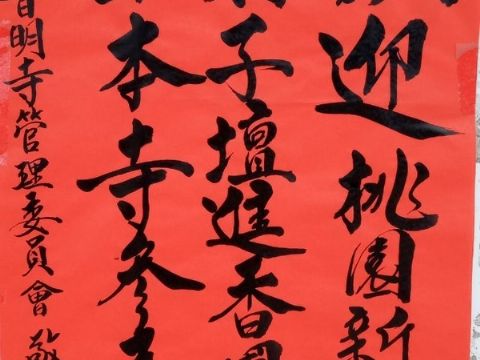 迎桃園新
子壇進香團
本寺參
明寺管理委員會 敬